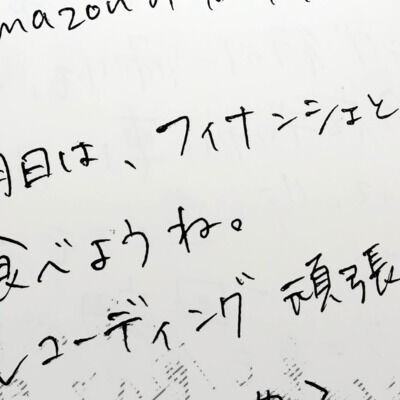 mazon
日は、フィナンシェと
食べようね。
ューディング頑張